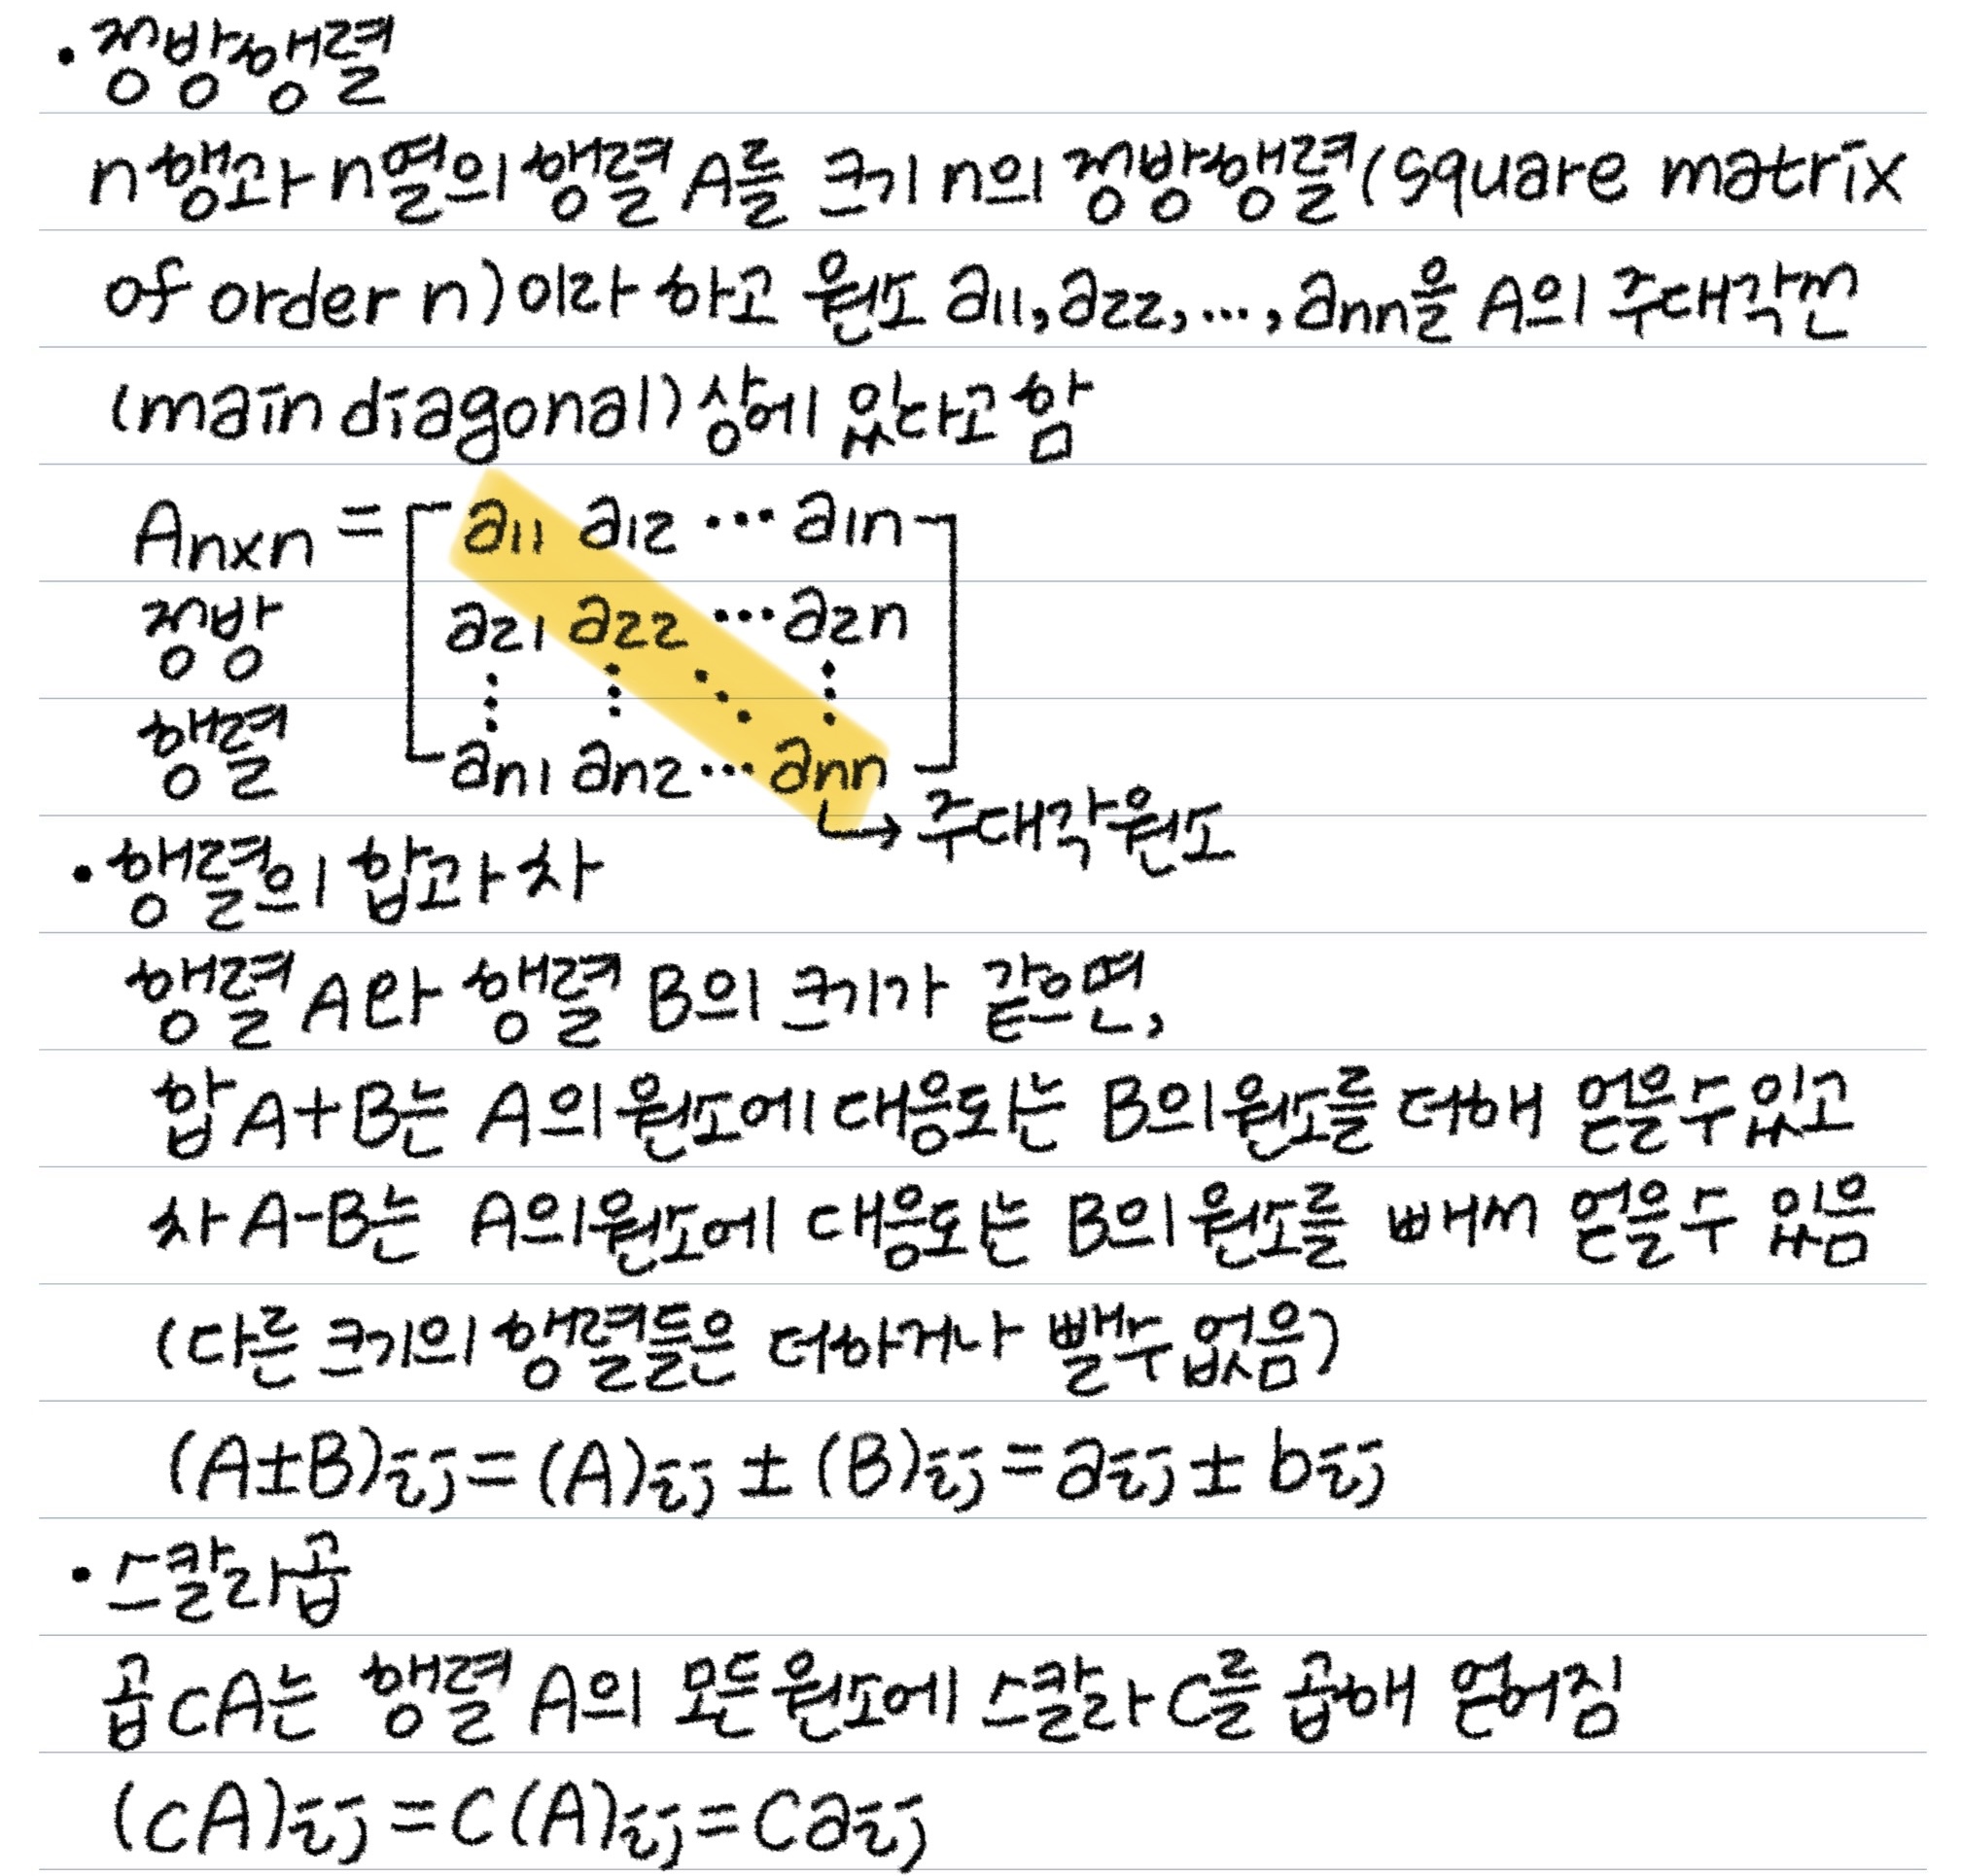 • 정방행렬
n행과 n열의 행렬 A를 크기 n의 정방행렬(square matrix
of order n)이라 하고 원소 a11, a22, ..., ann을 A의 주대각선
(main diagonal) 상에 있다고 함
Anxn = [ a11 a12 ... a1n ]
정방 a21 a22 ... a2n
⋮ ⋮ ⋱ ⋮
행렬 an1 an2 ... ann
↳ 주대각원소
• 행렬의 합과 차
행렬 A와 행렬 B의 크기가 같으면,
합 A+B는 A의 원소에 대응되는 B의 원소를 더해 얻을 수 있고
차 A-B는 A의 원소에 대응되는 B의 원소를 빼서 얻을 수 있음
(다른 크기의 행렬들은 더하거나 뺄 수 없음)
(A±B)ij = (A)ij ± (B)ij = aij ± bij
• 스칼라곱
곱 cA는 행렬 A의 모든 원소에 스칼라 c를 곱해 얻어짐
(cA)ij = c(A)ij = caij